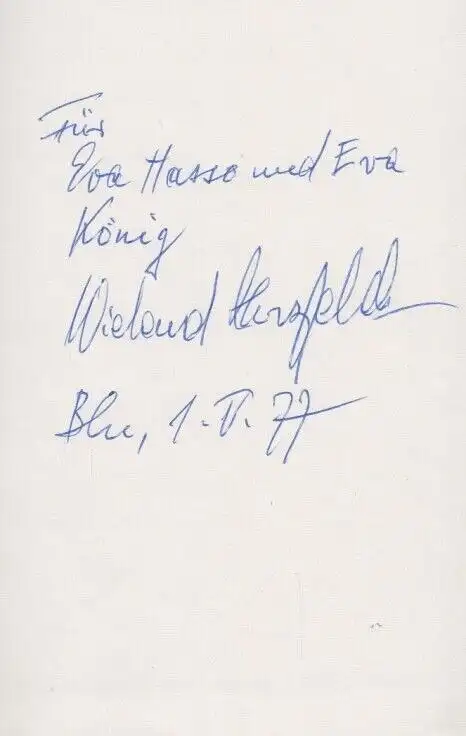 Für
Eva Hasso und Eva
König
Wieland Herzfelde
Bln, 1. V. 77